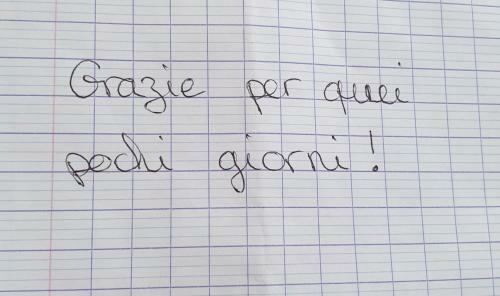 Grazie per quei
pochi giorni !